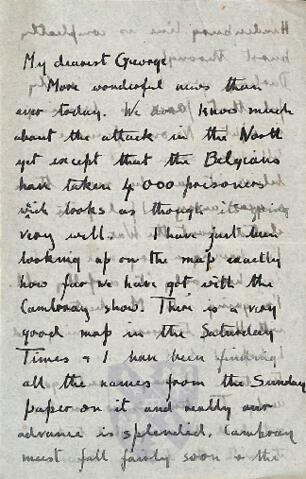 My dearest George
More wonderful news than
ever today. We don't know much
about the attack in the North
yet except that the Belgians
have taken 4000 prisoners
wich looks as though it's going
very well. I have just been
looking up on the map exactly
how far we have got with the
Cambray show. There is a very
good map in the Saturday
Times & I have been finding
all the names from the Sunday
paper on it and really our
advance is splendid. Cambray
must fall fairly soon & the